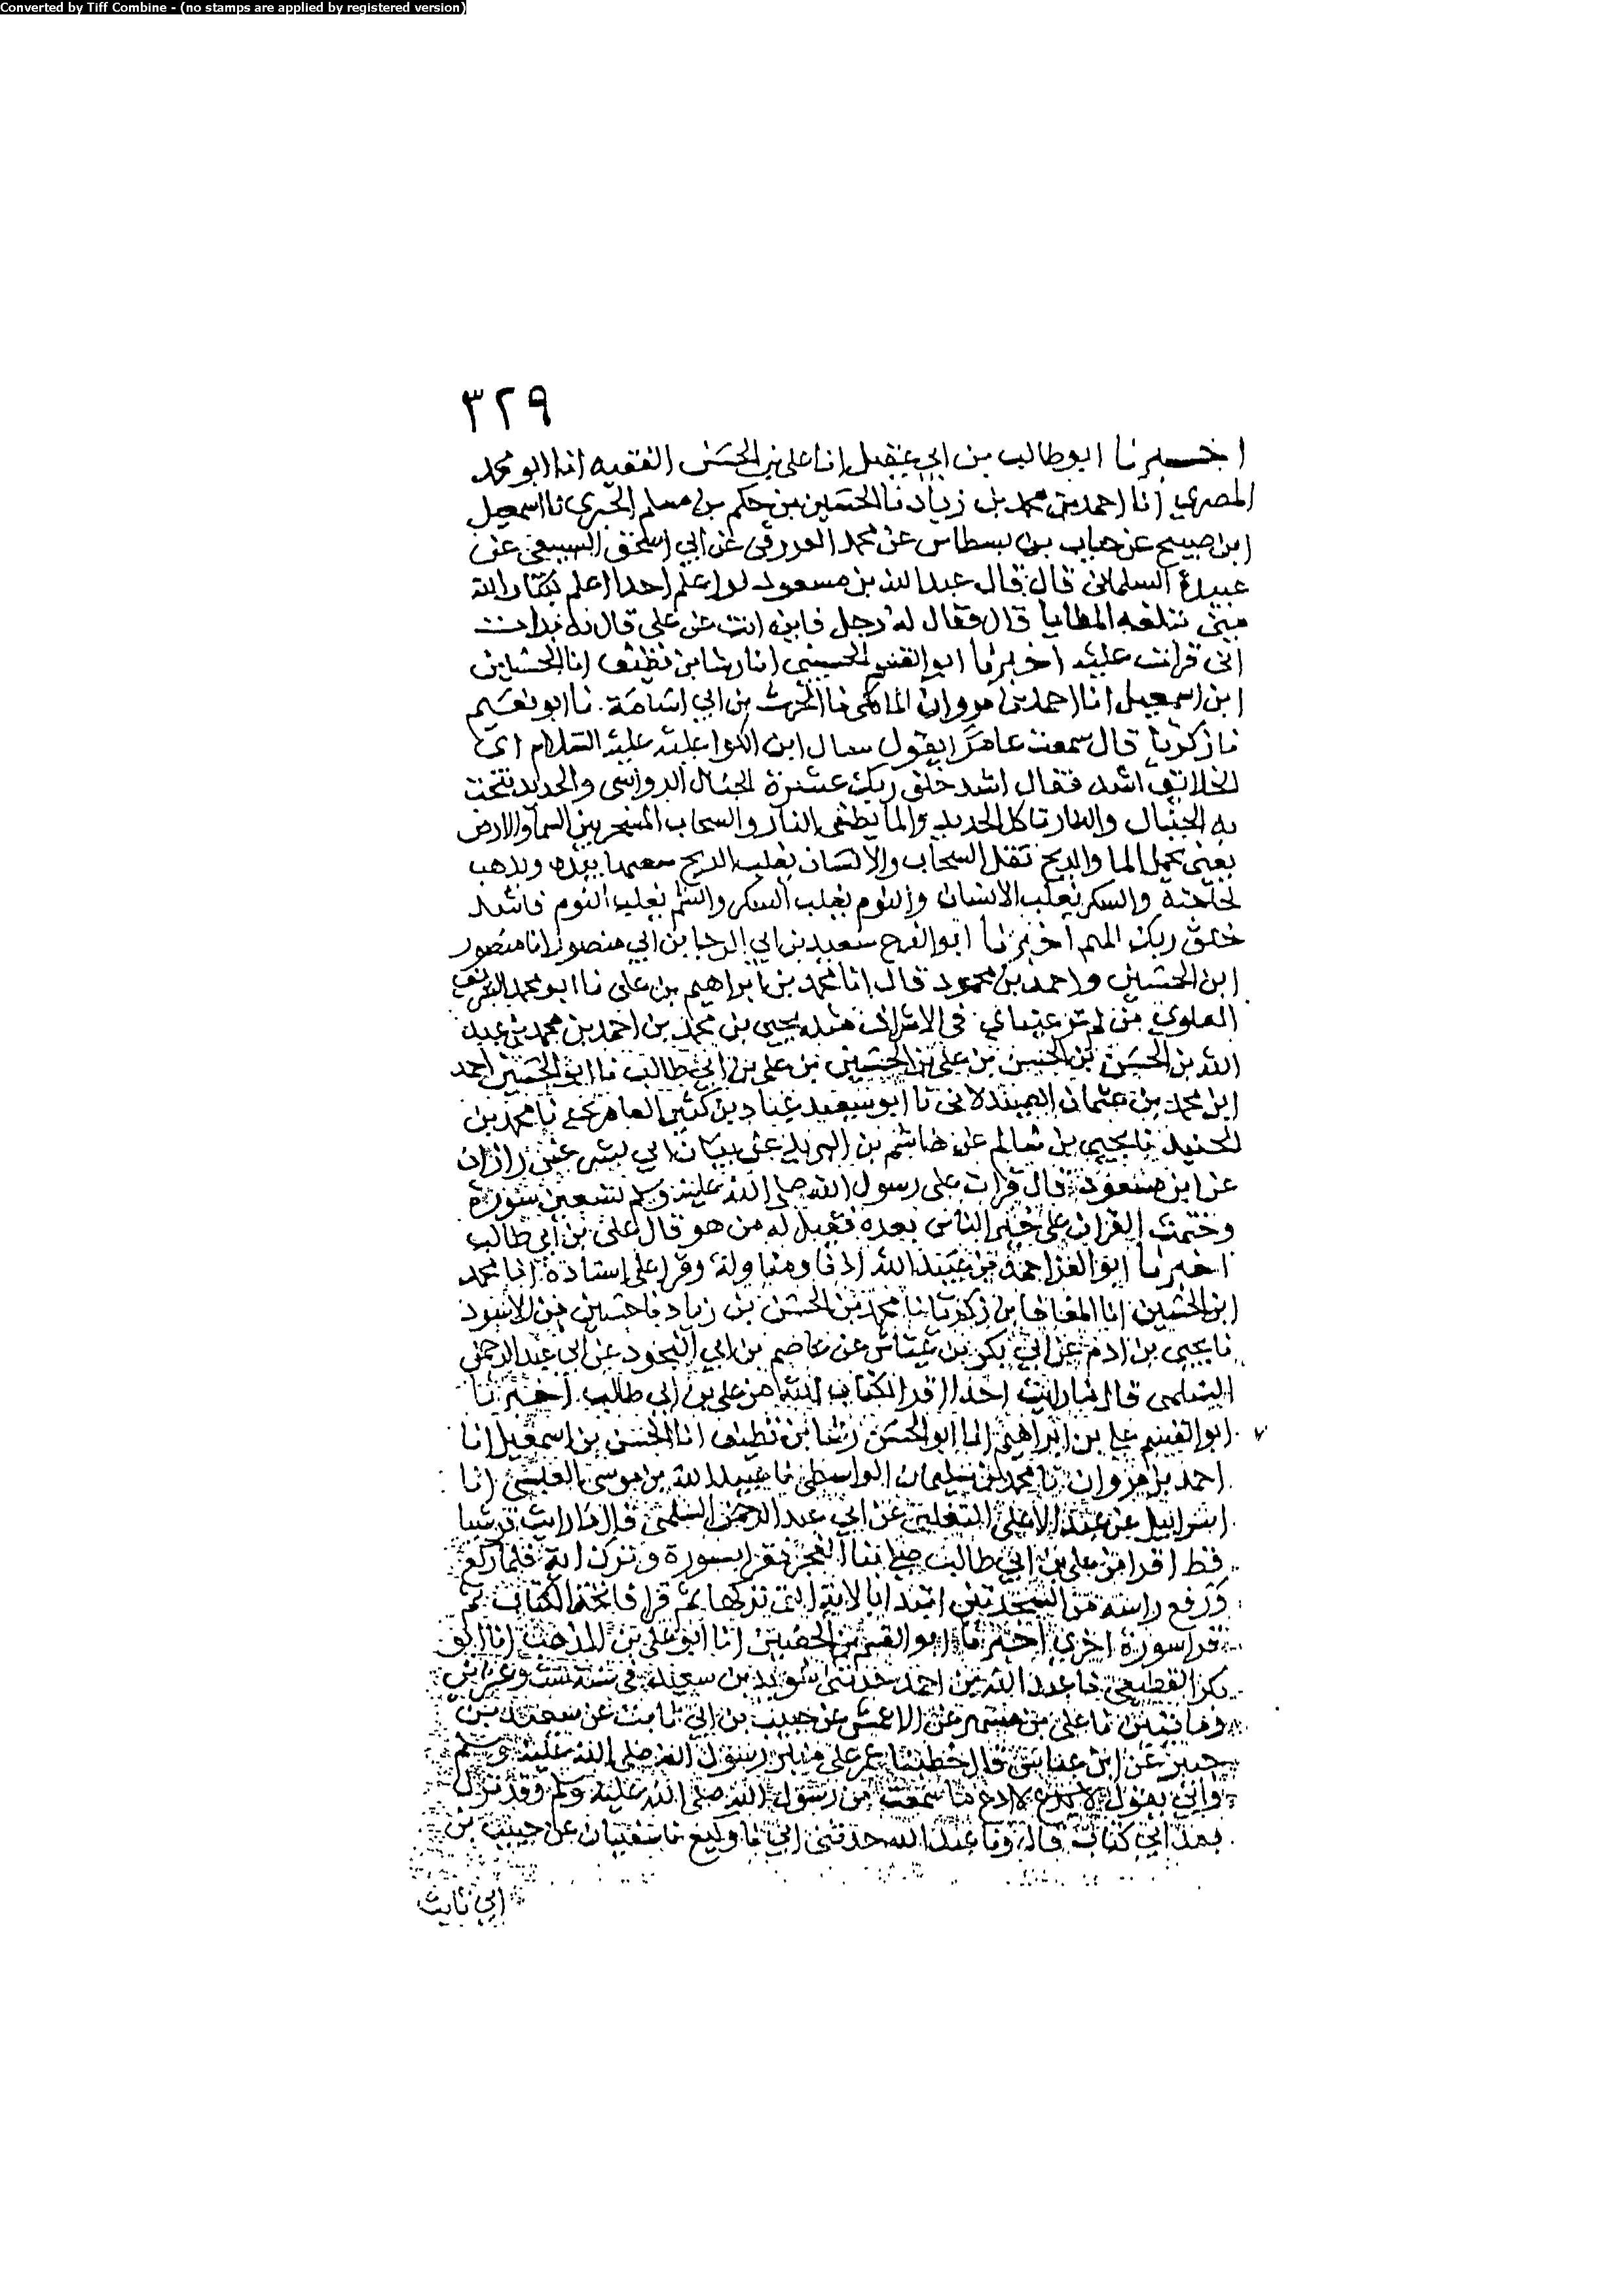 Converted by Tiff Combine - (no stamps are applied by registered version)
٣٢٩
اخبرنا ابو طالب بن ابي عقيل انا على بن الحسن الفقيه انا ابو محمد
المصري انا احمد بن محمد بن زياد نا الحسين بن حكم بن مسلم الحبرى نا اسمعيل
ابن صبيح عن جناب بن بسطاس عن محمد العرزمى عن ابي اسحق السبيعي عن
عبيدة السلمانى قال قال عبد الله بن مسعود لو اعلم احدا اعلم بكتاب الله
منى تبلغه المطايا قال فقال له رجل فاين انت عن على قال به بدات
انى قرات عليه اخبرنا ابو القسم الحسينى انا رشا بن نظيف انا الحسن
ابن اسمعيل انا احمد بن مروان المالكى نا الحرث بن ابي اسامة نا ابو نعيم
نا زكريا قال سمعت عامرا يقول سال ابن الكوا عليه عليه السلام اى
الخلائق اشد فقال اشد خلق ربك عشرة الجبال الرواسى والحديد تنحت
به الجبال والنار تاكل الحديد والما يطفى النار والسحاب المسخر بين السما والارض
يعنى يحمل الما والريح تقل السحاب والانسان يغلب الريح بيده ويذهب
لحاجته والسكر يغلب الانسان والنوم يغلب السكر والهم يغلب النوم فاشد
خلق ربك الهم اخبرنا ابو الفرج سعيد بن ابي الرجا بن ابي منصور انا منصور
ابن الحسين واحمد بن محمود قالا انا محمد بن ابراهيم بن على نا ابو محمد الشريف
العلوي من لم تر عيناي في الاشراف مثله يحيى بن محمد بن احمد بن محمد بن عبيد
الله بن الحسن بن الحسين بن على بن الحسين بن على بن ابي طالب نا ابو الحسين احمد
ابن محمد بن عثمان الصيدلانى نا ابو سعيد عباد بن كثير العامرى نا محمد بن
الجنيد نا يحيى بن سالم عن هاشم بن البريد عن بيان ابي بشر عن زاذان
عن ابن مسعود قال قرات على رسول الله صلى الله عليه وسلم تسعين سورة
وختمت القران على خير الناس بعده فقيل له من هو قال على بن ابي طالب
اخبرنا ابو العز احمد بن عبيد الله اذنا ومناولة وقرا على اسناده انا محمد
ابن الحسين انا المعافا بن زكريا نا محمد بن الحسن بن زياد نا حسين بن الاسود
نا يحيى بن ادم عن ابي بكر بن عياش عن عاصم بن ابي النجود عن ابي عبد الرحمن
السلمى قال ما رايت احدا اقرا لكتاب الله من على بن ابي طالب اخبرنا
ابو القسم على بن ابراهيم انا ابو الحسن رشا بن نظيف انا الحسن بن اسمعيل انا
احمد بن مروان نا محمد بن سليمان الواسطى نا عبيد الله بن موسى العبسى انا
اسرائيل عن عبد الاعلى الثعلبى عن ابي عبد الرحمن السلمى قال ما رايت قرشيا
قط اقرا من على بن ابي طالب صلى بنا الفجر فقرا بسورة وترك اية فلما ركع
ورفع راسه من السجدتين ابتدا بالاية التى تركها ثم قرا فاتحة الكتاب ثم
قرا سورة اخرى اخبرنا ابو القسم بن الحصين انا ابو على بن المذهب انا ابو
بكر القطيعى نا عبد الله بن احمد حدثنى سويد بن سعيد فى سنة ست وعشرين
ومائتين نا على بن مسهر عن الاعمش عن حبيب بن ابي ثابت عن سعيد بن
جبير عن ابن عباس قال خطبنا عمر على منبر رسول الله صلى الله عليه وسلم
وابي يقول لا ادع ما سمعت من رسول الله صلى الله عليه وسلم وقد نزل
بعد ابي كتاب قال ونا عبد الله حدثنى ابي نا وكيع نا سفيان عن حبيب بن
ابي ثابت